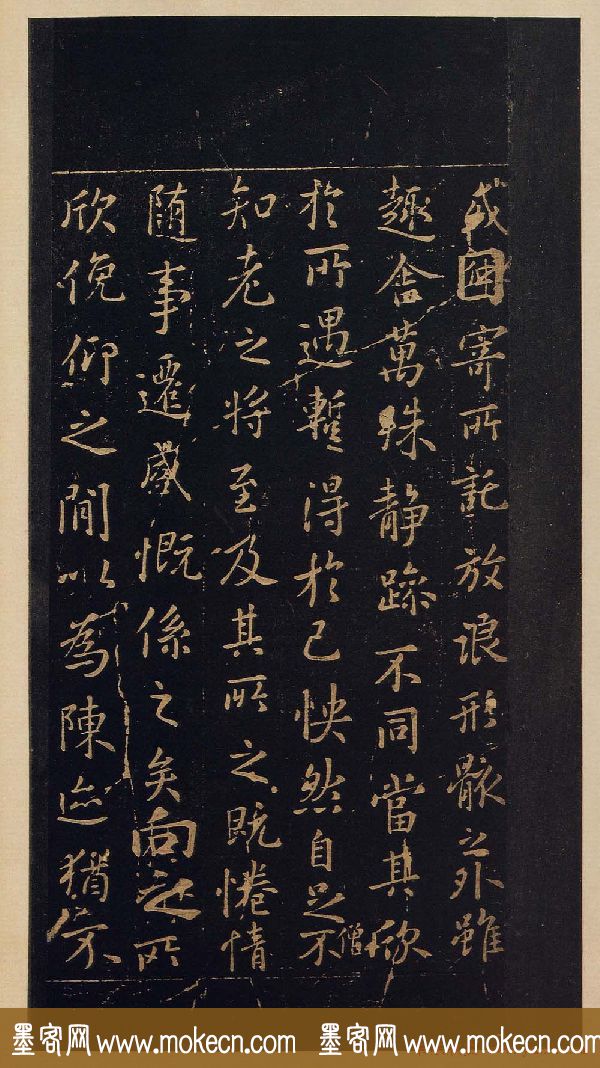 或因寄所託放浪形骸之外雖
趣舍萬殊静躁不同當其欣
於所遇蹔得於己怏然自足不
僧
知老之將至及其所之既惓情
随事遷感慨係之矣向之所
欣俛仰之間以為陳迹猶不
墨客网 www.mokecn.com 墨客网 www.mokecn.com